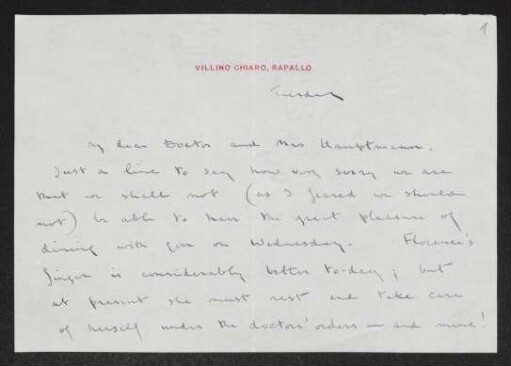 1
VILLINO CHIARO, RAPALLO
Tuesday
My dear Doctor and Mrs Hauptmann.
Just a line to say how very sorry we are
that we shall not (as I feared we should
not) be able to have the great pleasure of
dining with you on Wednesday. Florence's
finger is considerably better to-day; but
at present she must rest and take care
of herself under the doctors' orders — and mine!